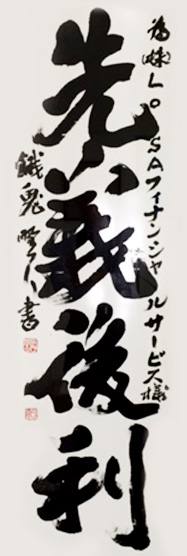 為(株)LoSAフィナンシャルサービス様
先義後利
餓鬼
書